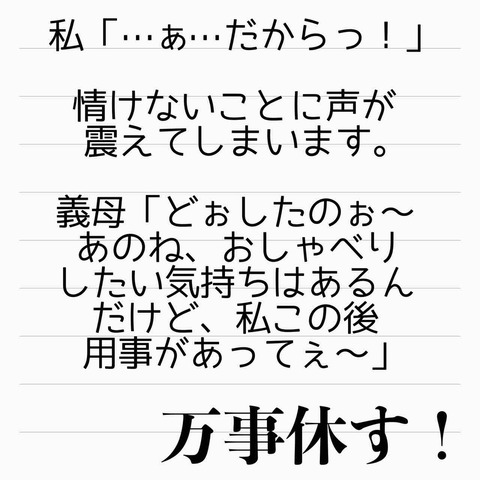 私「…ぁ…だからっ！」
情けないことに声が
震えてしまいます。
義母「どぉしたのぉ〜
あのね、おしゃべり
したい気持ちはあるん
だけど、私この後
用事があってぇ〜」
万事休す！